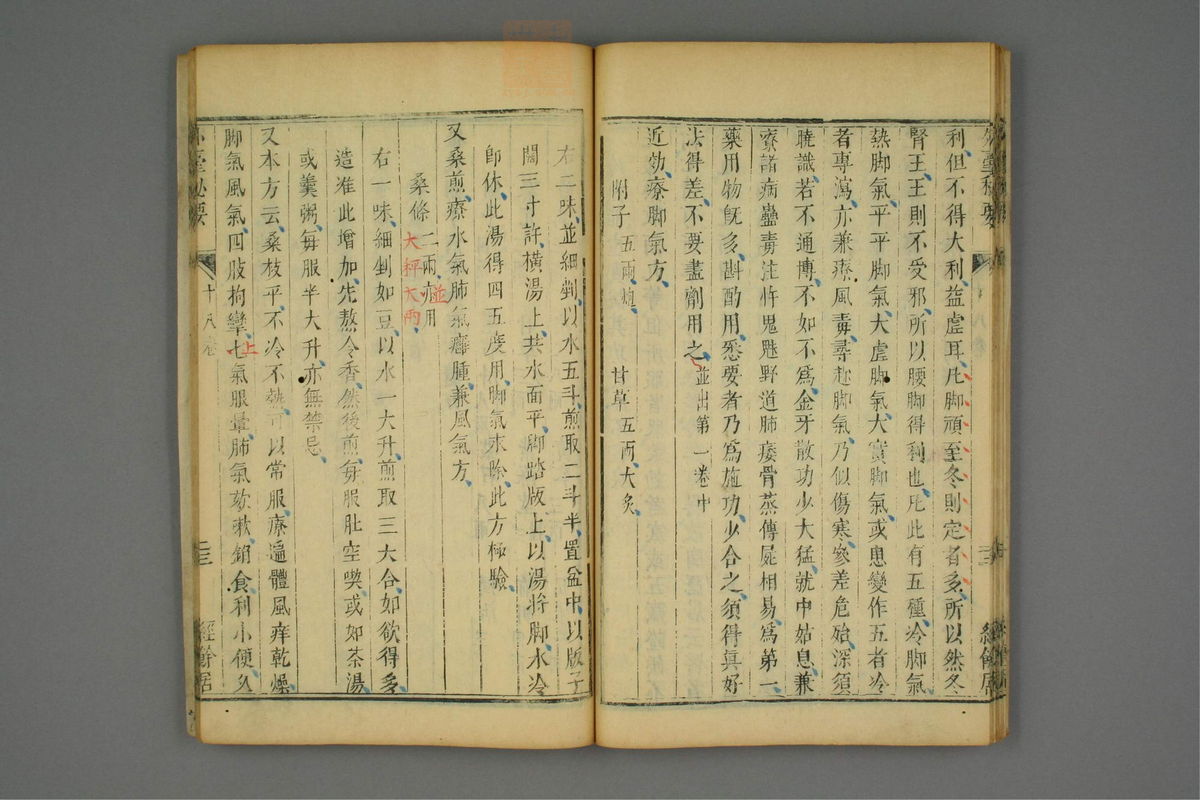 利但不得大利益虛耳凡脚頑至冬則定者多所以然冬
腎王王則不受邪所以腰脚得利也凡此有五種冷脚氣
熱脚氣平平脚氣大虛脚氣大實脚氣或患變作五者冷
者專瀉亦兼療風毒尋赴脚氣乃似傷寒參差危殆深須
曉識若不通博不如不爲金牙散功少大猛就中姑息兼
療諸病蠱毒注忤鬼魅野道肺痿骨蒸傳屍相易爲第一
藥用物既多斟酌用悉要者乃爲施功少合之須得真好
法得差不要盡劑用之並出第一卷中
近効療脚氣方
附子五兩炮 甘草五兩大炙
右二味並細剉以水五斗煎取二斗半置盆中以版子
闊三寸許橫湯上共水面平脚踏版上以湯將脚水冷
即休此湯得四五度用脚氣未除此方極驗
又桑煎療水氣肺氣癰腫兼風氣方
桑條二兩 用
並
大秤大兩
右一味細剉如豆以水一大升煎取三大合如欲得多
造准此增加先熬令香然後煎每服肚空喫或如茶湯
或羹粥每服半大升亦無禁忌
又本方云桑枝平不冷不熱可以常服療遍體風痒乾燥
脚氣風氣四肢拘攣七氣眼暈肺氣欬嗽銷食利小便久
上
外臺秘要
十八卷
三
經餘居